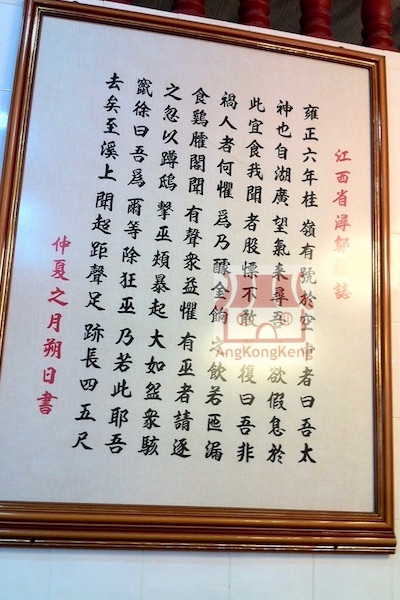 江西省潯鄔誌
雍正六年桂嶺有號於空者曰吾太
神也自湖廣望氣來尋吾欲假息於
此宜食我聞者股慄不敢復曰吾非
禍人者何懼爲乃醵金餉之飲若匜漏
食鷄臛閣聞有聲衆益懼有巫者請逐
之忽以蹲鴟擊巫頰暴起大如盆衆駭
竄徐曰吾爲爾等除狂巫乃若此耶吾
去矣至溪上聞起距聲足跡長四五尺
仲夏之月朔日書
AngKongKeng